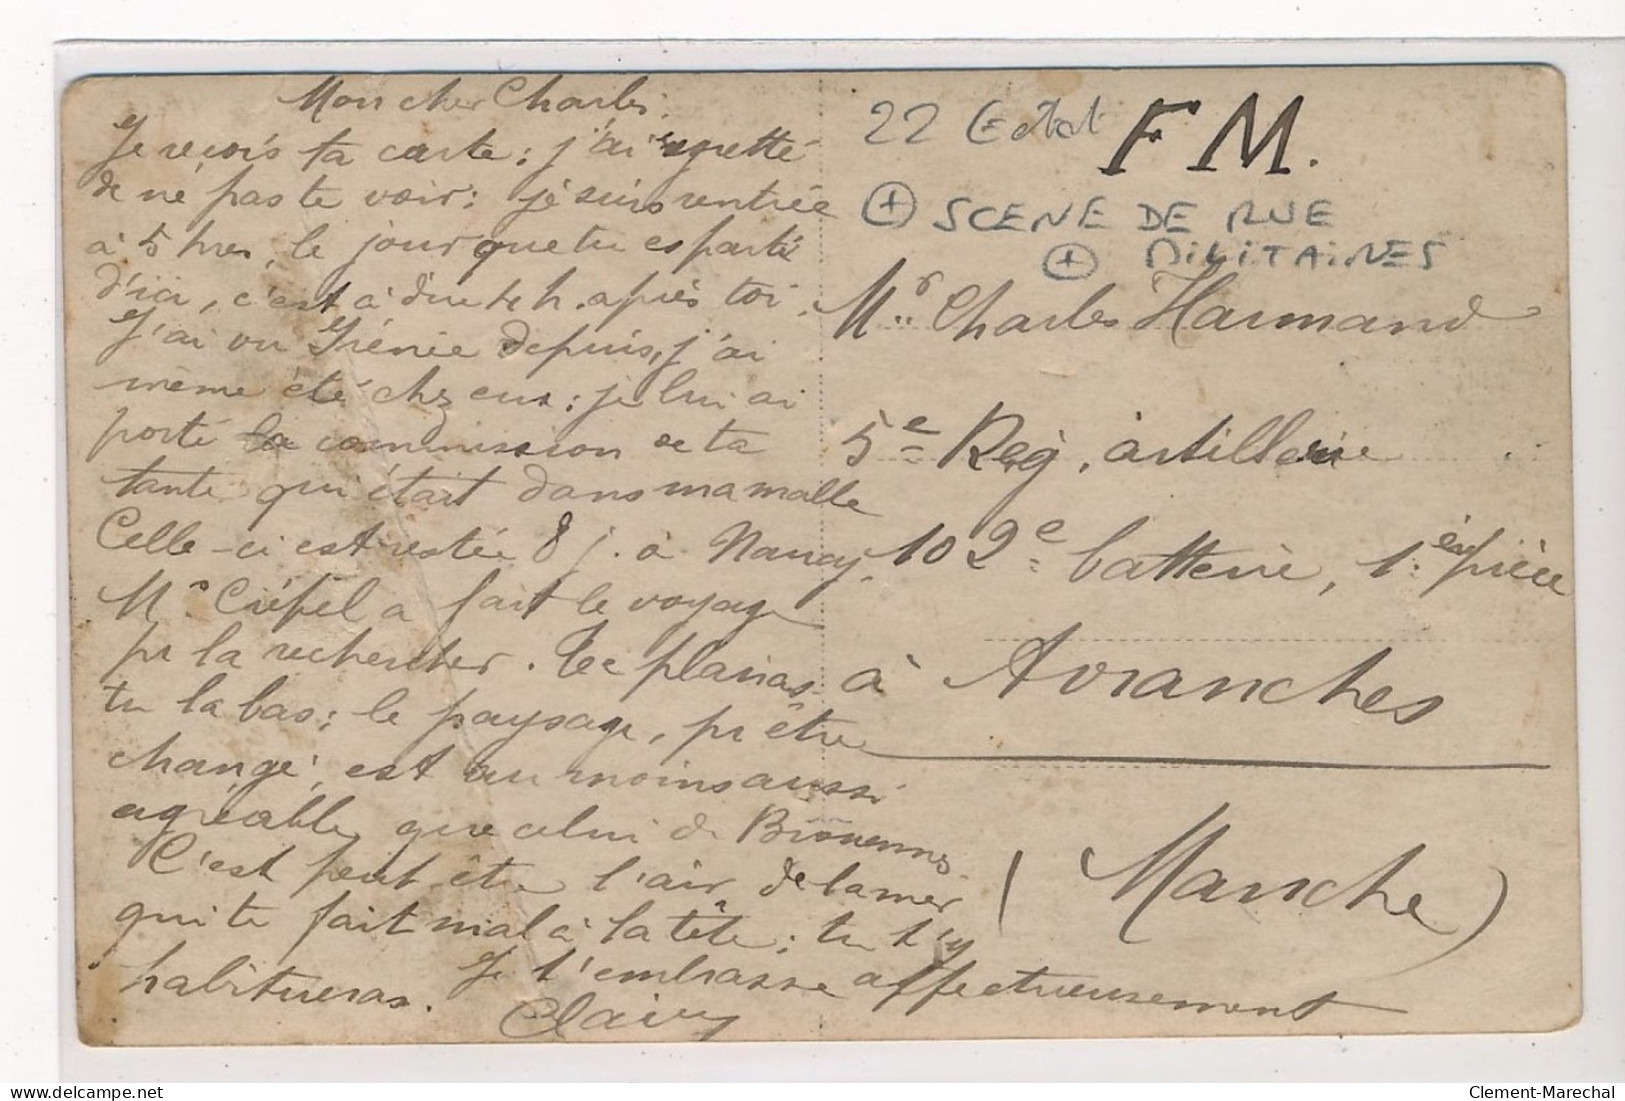 Mon cher Charles.
Je reçois ta carte ; j'ai regretté
de ne pas te voir ; je suis rentrée
à 5 hres, le jour que tu es parti
d'ici, c'est à dire h. après toi.
J'ai vu Irénée depuis, j'ai
même été chez eux ; je lui ai
porté la commission de ta
tante qui était dans ma malle
Celle-ci est restée 8 j. à Nancy.
Mr Crépel a fait le voyage
pr la rechercher. Te plairas
tu la bas ; le paysage, pr être
changé, est au moins aussi
agréable que celui de
C'est peut être l'air de la mer
qui te fait mal à la tête ; tu t'y
habitueras. Je t'embrasse affectueusement
22 Etat FM.
+ SCENE DE RUE
+ MILITAIRES
Mr Charles Harmand
5e Rég. artillerie
102e batterie, 1ère pièce
à Avranches
(Manche)
Clement-Marechal